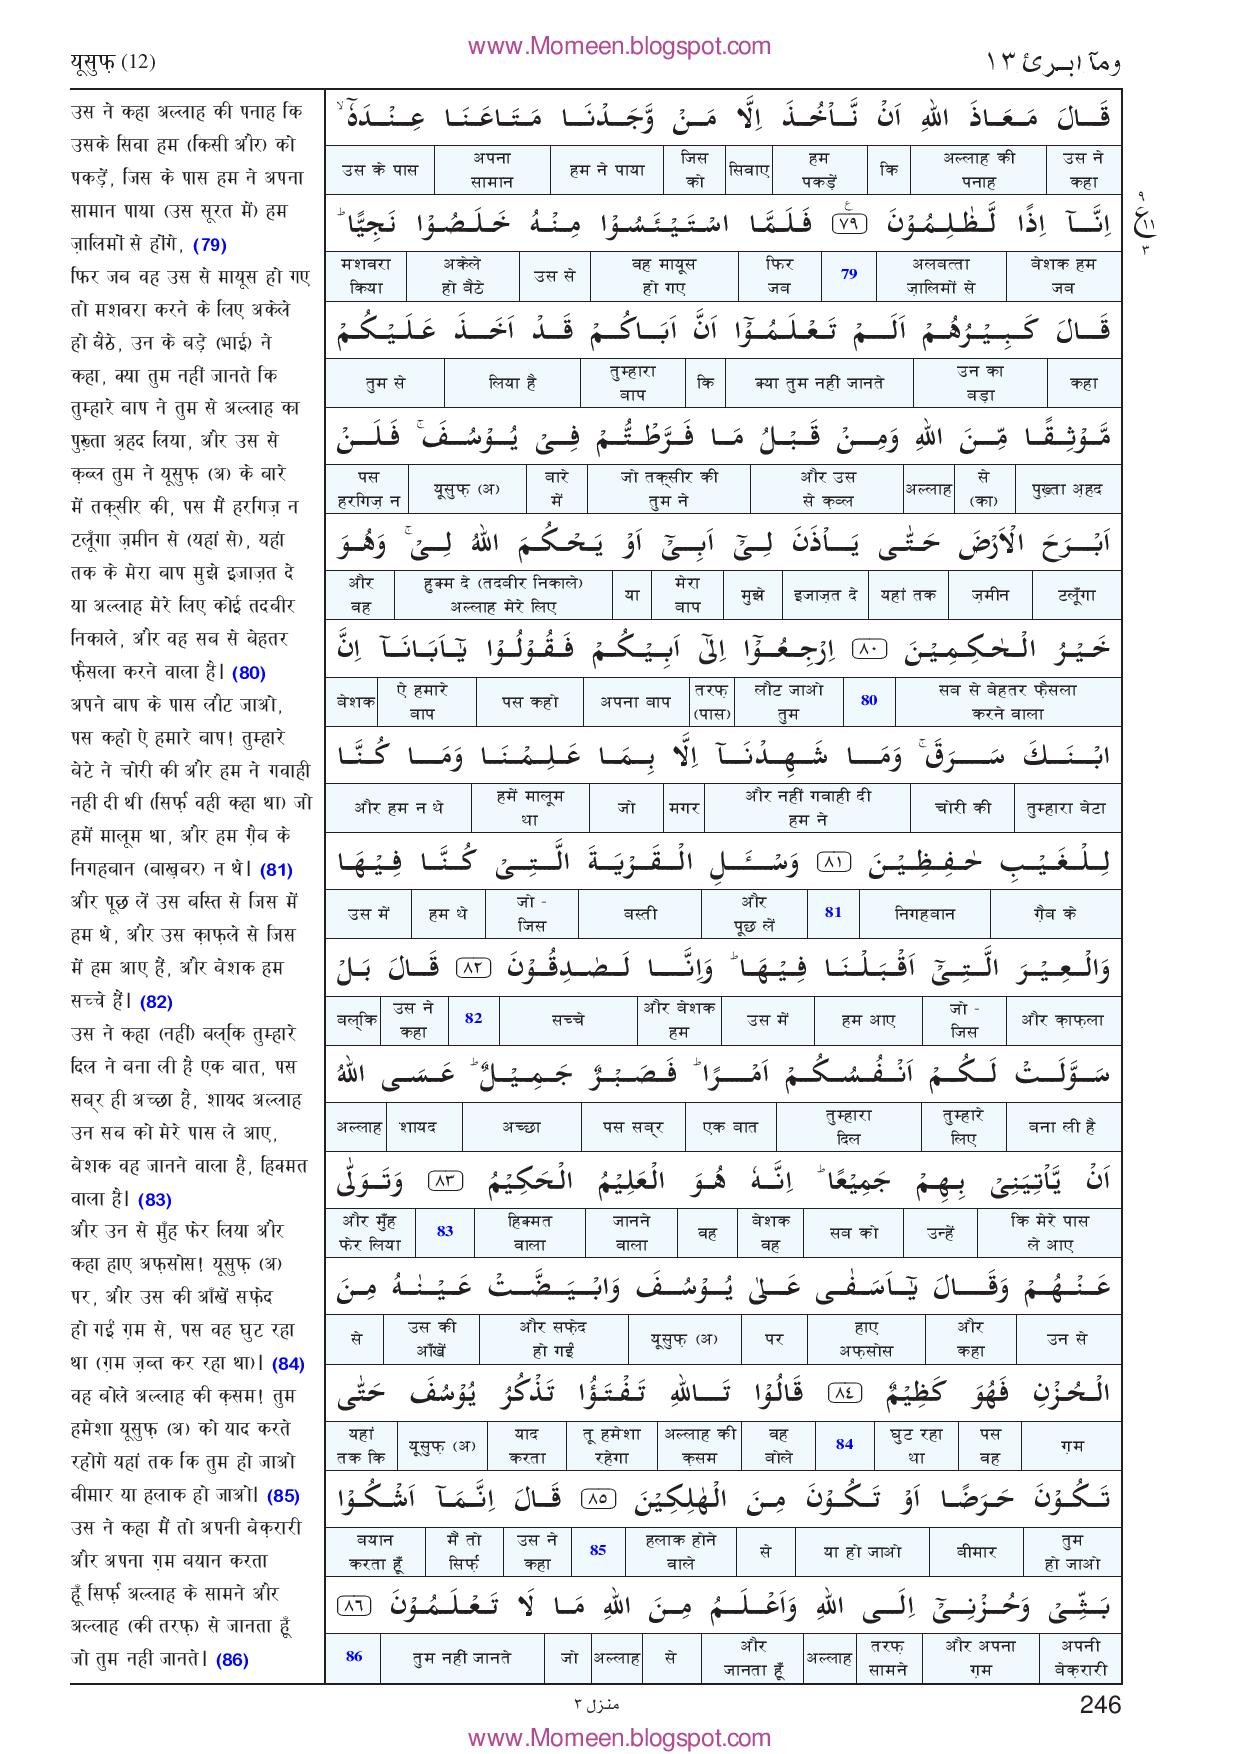 www.Momeen.blogspot.com
यूसुफ़ (12)
ومآ ابرئ ١٣
उस ने कहा अल्लाह की पनाह कि
उसके सिवा हम (किसी और) को
पकड़ें, जिस के पास हम ने अपना
सामान पाया (उस सूरत में) हम
ज़ालिमों से होंगे, (79)
फिर जब वह उस से मायूस हो गए
तो मशवरा करने के लिए अकेले
हो बैठे, उन के बड़े (भाई) ने
कहा, क्या तुम नहीं जानते कि
तुम्हारे बाप ने तुम से अल्लाह का
पुख़्ता अ़हद लिया, और उस से
क़ब्ल तुम ने यूसुफ़ (अ) के बारे
में तक़्सीर की, पस मैं हरगिज़ न
टलूँगा ज़मीन से (यहां से), यहां
तक के मेरा बाप मुझे इजाज़त दे
या अल्लाह मेरे लिए कोई तदबीर
निकाले, और वह सब से बेहतर
फ़ैसला करने वाला है। (80)
अपने बाप के पास लौट जाओ,
पस कहो ऐ हमारे बाप! तुम्हारे
बेटे ने चोरी की और हम ने गवाही
नहीं दी थी (सिर्फ़ वही कहा था) जो
हमें मालूम था, और हम ग़ैब के
निगहबान (बाख़बर) न थे। (81)
और पूछ लें उस बस्ति से जिस में
हम थे, और उस क़ाफ़ले से जिस
में हम आए हैं, और बेशक हम
सच्चे हैं। (82)
उस ने कहा (नहीं) बल्कि तुम्हारे
दिल ने बना ली है एक बात, पस
सब्र ही अच्छा है, शायद अल्लाह
उन सब को मेरे पास ले आए,
बेशक वह जानने वाला है, हिक्मत
वाला है। (83)
और उन से मुँह फेर लिया और
कहा हाए अफ़सोस! यूसुफ़ (अ)
पर, और उस की आँखें सफ़ेद
हो गईं ग़म से, पस वह घुट रहा
था (ग़म ज़ब्त कर रहा था)। (84)
वह बोले अल्लाह की क़सम! तुम
हमेशा यूसुफ़ (अ) को याद करते
रहोगे यहां तक कि तुम हो जाओ
बीमार या हलाक हो जाओ। (85)
उस ने कहा मैं तो अपनी बेक़रारी
और अपना ग़म बयान करता
हूँ सिर्फ़ अल्लाह के सामने और
अल्लाह (की तरफ़) से जानता हूँ
जो तुम नहीं जानते। (86)
قَالَ مَعَاذَ اللّٰهِ اَنْ نَّاْخُذَ اِلَّا مَنْ وَّجَدْنَا مَتَاعَنَا عِنْدَهٗٓ ۙ
उस ने कहा | अल्लाह की पनाह | कि | हम पकड़ें | सिवाए | जिस को | हम ने पाया | अपना सामान | उस के पास
اِنَّآ اِذًا لَّظٰلِمُوْنَ ٧٩ فَلَمَّا اسْتَيْئَسُوْا مِنْهُ خَلَصُوْا نَجِيًّا ؕ
बेशक हम जब | अलबत्ता ज़ालिमों से | 79 | फिर जब | वह मायूस हो गए | उस से | अकेले हो बैठे | मशवरा किया
قَالَ كَبِيْرُهُمْ اَلَمْ تَعْلَمُوْٓا اَنَّ اَبَاكُمْ قَدْ اَخَذَ عَلَيْكُمْ
कहा | उन का बड़ा | क्या तुम नहीं जानते | कि | तुम्हारा बाप | लिया है | तुम से
مَّوْثِقًا مِّنَ اللّٰهِ وَمِنْ قَبْلُ مَا فَرَّطْتُّمْ فِيْ يُوْسُفَ ۚ فَلَنْ
पुख़्ता अ़हद | से (का) | अल्लाह | और उस से क़ब्ल | जो तक़्सीर की तुम ने | बारे में | यूसुफ़ (अ) | पस हरगिज़ न
اَبْرَحَ الْاَرْضَ حَتّٰى يَاْذَنَ لِيْٓ اَبِيْٓ اَوْ يَحْكُمَ اللّٰهُ لِيْ ۚ وَهُوَ
टलूँगा | ज़मीन | यहां तक | इजाज़त दे | मुझे | मेरा बाप | या | हुक्म दे (तदबीर निकाले) अल्लाह मेरे लिए | और वह
خَيْرُ الْحٰكِمِيْنَ ٨٠ اِرْجِعُوْٓا اِلٰٓى اَبِيْكُمْ فَقُوْلُوْا يٰٓاَبَانَآ اِنَّ
सब से बेहतर फ़ैसला करने वाला | 80 | लौट जाओ तुम | तरफ़ (पास) | अपना बाप | पस कहो | ऐ हमारे बाप | बेशक
ابْنَكَ سَرَقَ ۚ وَمَا شَهِدْنَآ اِلَّا بِمَا عَلِمْنَا وَمَا كُنَّا
तुम्हारा बेटा | चोरी की | और नहीं गवाही दी हम ने | मगर | जो | हमें मालूम था | और हम न थे
لِلْغَيْبِ حٰفِظِيْنَ ٨١ وَسْـَٔلِ الْقَرْيَةَ الَّتِيْ كُنَّا فِيْهَا
ग़ैब के | निगहबान | 81 | और पूछ लें | बस्ती | जो - जिस | हम थे | उस में
وَالْعِيْرَ الَّتِيْٓ اَقْبَلْنَا فِيْهَا ؕ وَاِنَّا لَصٰدِقُوْنَ ٨٢ قَالَ بَلْ
और क़ाफ़ला | जो - जिस | हम आए | उस में | और बेशक हम | सच्चे | 82 | उस ने कहा | बल्कि
سَوَّلَتْ لَكُمْ اَنْفُسُكُمْ اَمْرًا ؕ فَصَبْرٌ جَمِيْلٌ ؕ عَسَى اللّٰهُ
बना ली है | तुम्हारे लिए | तुम्हारा दिल | एक बात | पस सब्र | अच्छा | शायद | अल्लाह
اَنْ يَّاْتِيَنِيْ بِهِمْ جَمِيْعًا ؕ اِنَّهٗ هُوَ الْعَلِيْمُ الْحَكِيْمُ ٨٣ وَتَوَلّٰى
कि मेरे पास ले आए | उन्हें | सब को | बेशक वह | वह | जानने वाला | हिक्मत वाला | 83 | और मुँह फेर लिया
عَنْهُمْ وَقَالَ يٰٓاَسَفٰى عَلٰى يُوْسُفَ وَابْيَضَّتْ عَيْنٰهُ مِنَ
उन से | और कहा | हाए अफ़सोस | पर | यूसुफ़ (अ) | और सफ़ेद हो गईं | उस की आँखें | से
الْحُزْنِ فَهُوَ كَظِيْمٌ ٨٤ قَالُوْا تَاللّٰهِ تَفْتَؤُا تَذْكُرُ يُوْسُفَ حَتّٰى
ग़म | पस वह | घुट रहा था | 84 | वह बोले | अल्लाह की क़सम | तू हमेशा रहेगा | याद करता | यूसुफ़ (अ) | यहां तक कि
تَكُوْنَ حَرَضًا اَوْ تَكُوْنَ مِنَ الْهٰلِكِيْنَ ٨٥ قَالَ اِنَّمَآ اَشْكُوْا
तुम हो जाओ | बीमार | या हो जाओ | से | हलाक होने वाले | 85 | उस ने कहा | मैं तो सिर्फ़ | बयान करता हूँ
بَثِّيْ وَحُزْنِيْٓ اِلَى اللّٰهِ وَاَعْلَمُ مِنَ اللّٰهِ مَا لَا تَعْلَمُوْنَ ٨٦
अपनी बेक़रारी | और अपना ग़म | तरफ़ सामने | अल्लाह | और जानता हूँ | से | अल्लाह | जो | तुम नहीं जानते | 86
٩
ع
١١
٣
منزل ٣
246
www.Momeen.blogspot.com